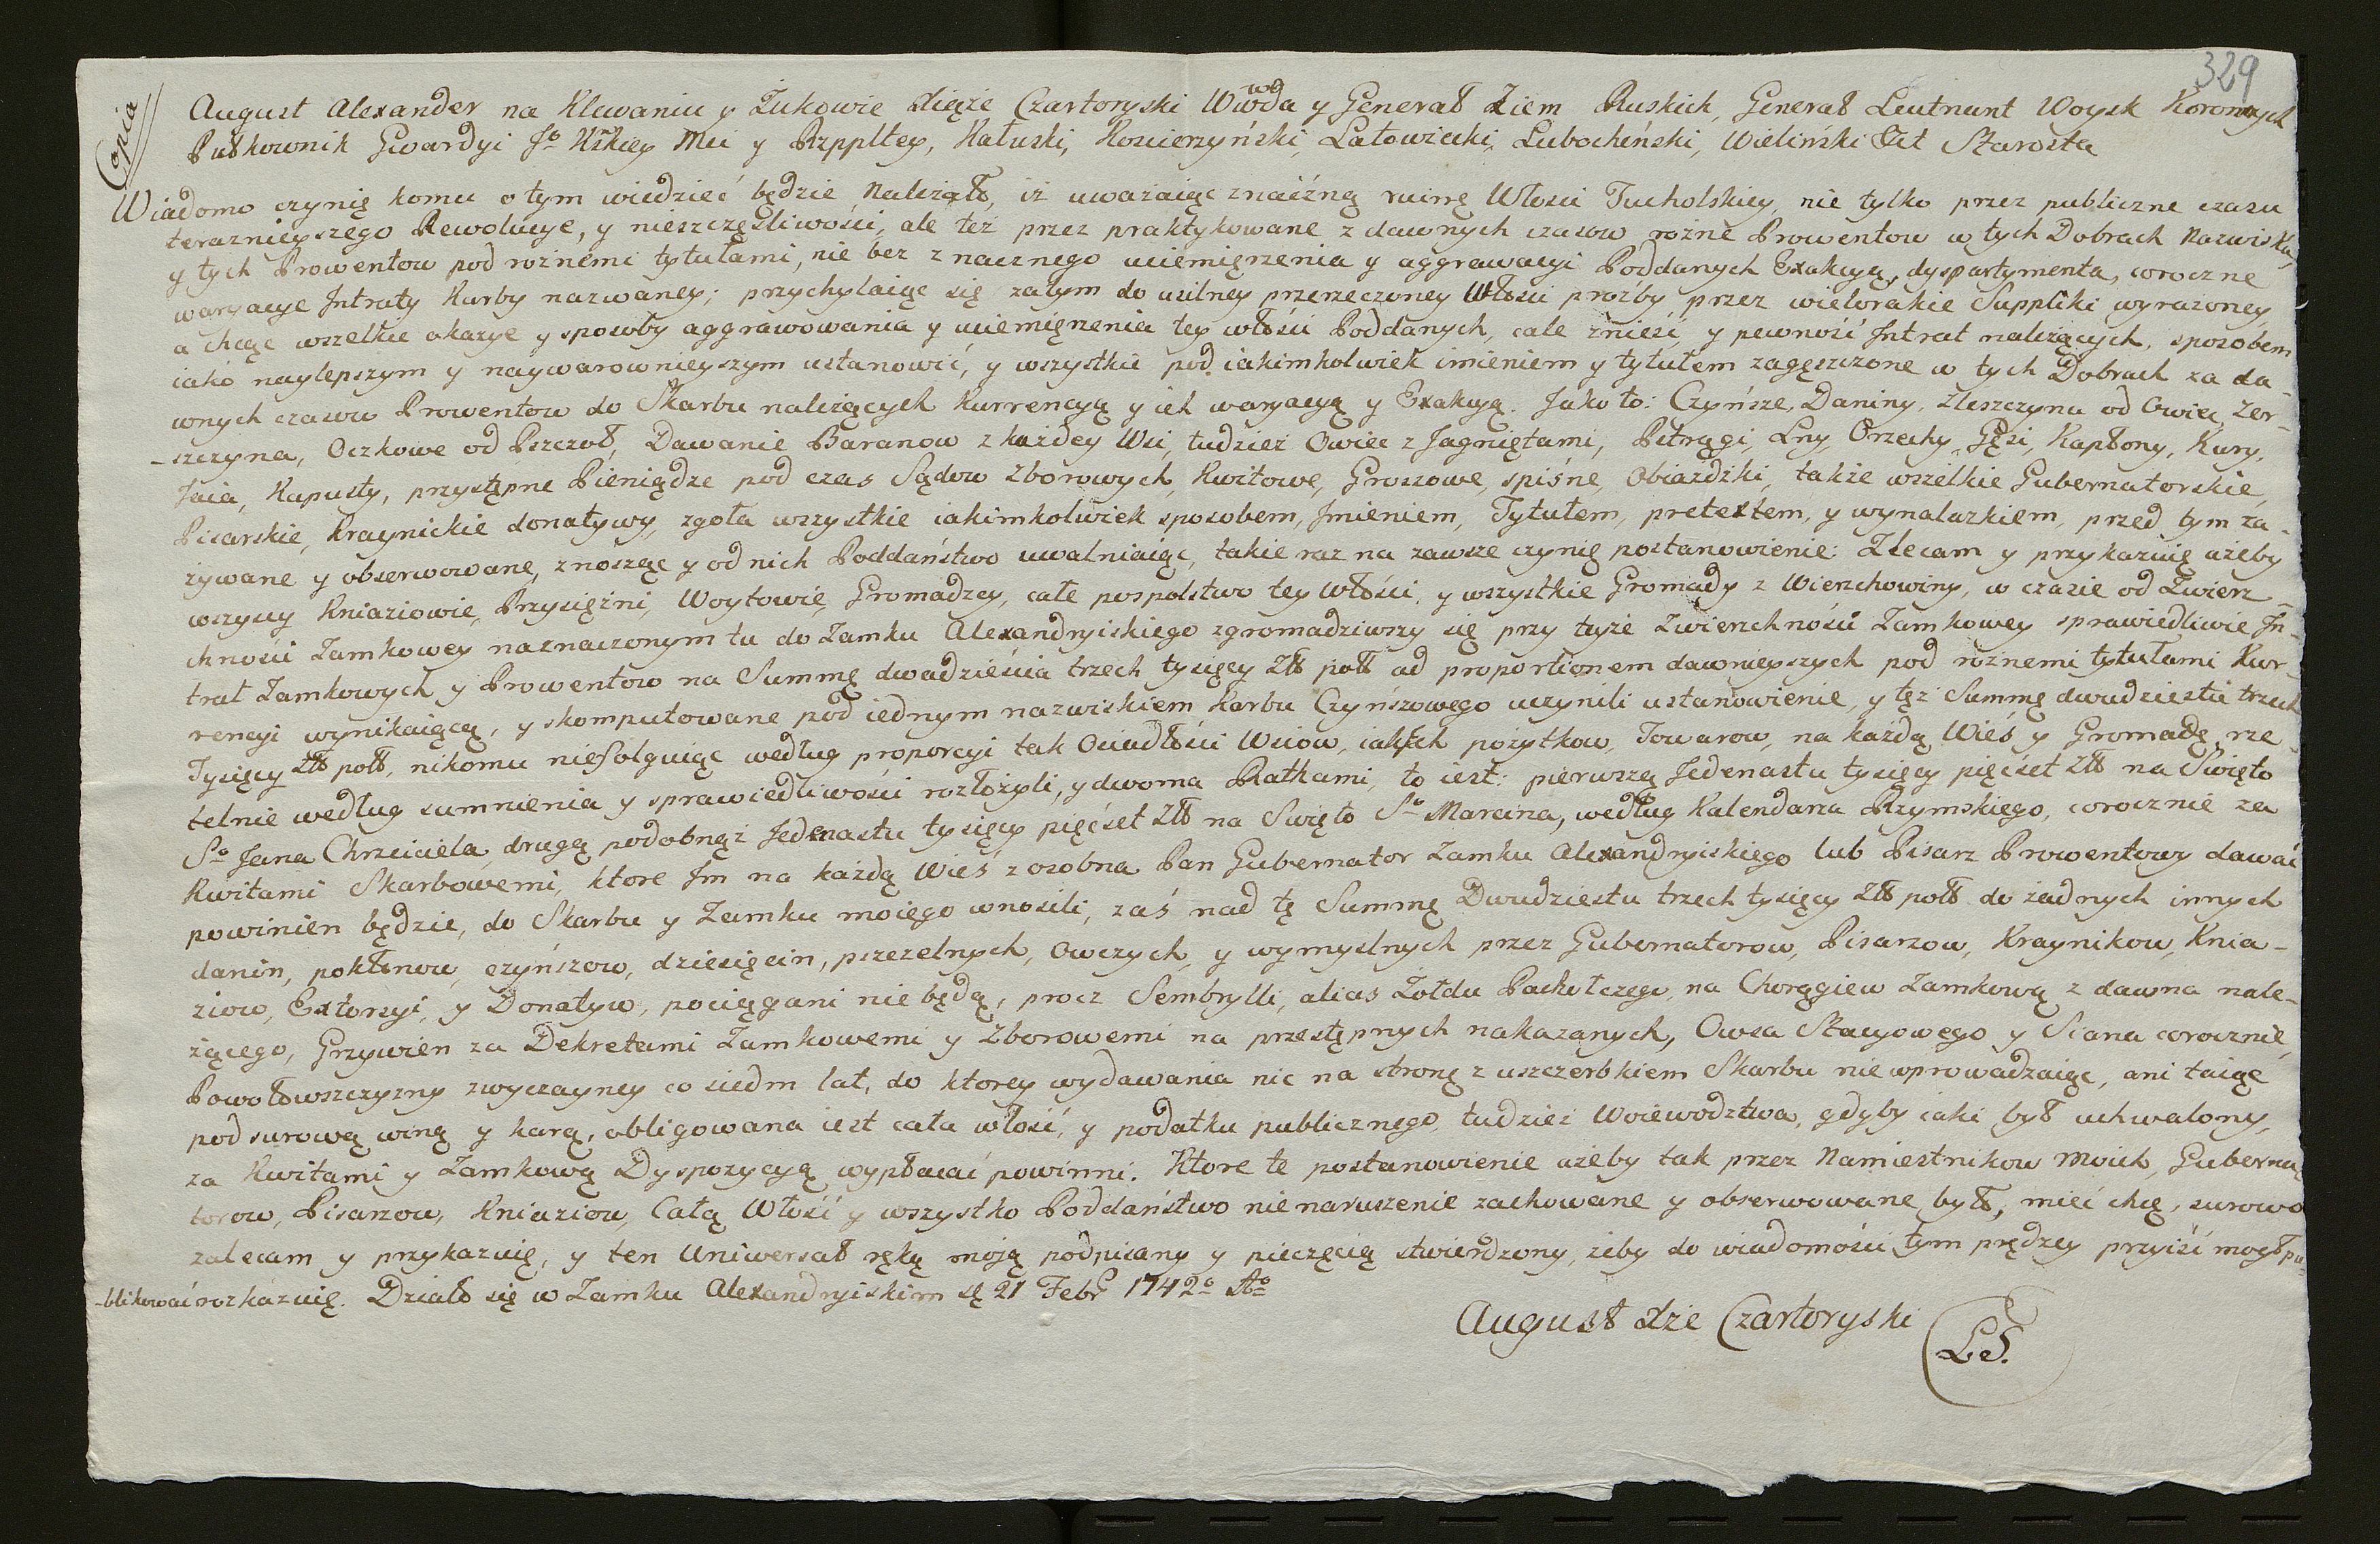 329
Copia
August Alexander na Klewaniu y Żukowie Xiąże Czartoryski Wwda y Generał Ziem Ruskich, Generał Leutnant Woysk Koronnych
Pułkownik Gwardyi Jo Kskiey Mci y Rzppltey, Kałuski, Kościerzyński, Latowicki, Lubocheński, Wieliński Etct Starosta
Wiadomo czynię komu o tym wiedzieć będzie należało, iż uważaiąc znaczną ruinę Włosci Tucholskiey, nie tylko przez publiczne czasu
teraznieyszego Rewolucye, y nieszczęśliwości, ale też przez praktykowane z dawnych czasow rożne Prowentow w tych Dobrach Nazwiska,
y tych Prowentow pod rożnemi tytułami, nie bez znacznego uciemięzenia y aggrawacyi Poddanych Exakcyą, dyspartymenta, coroczne
waryacye Intraty Karby nazwaney; przychylaiąc się zatym do usilney przerzeczoney Włosci proźby przez wielorakie Suppliki wyrażoney
a chcąc wszelkie okazye y sposoby aggrawowania y uciemięzenia tey włości Poddanych, cale znieść, y pewność Intrat należących, sposobem
iako naylepszym y naywarownieyszym ustanowić, y wszystkie pod iakimkolwiek imieniem y tytułem zagęszczone w tych Dobrach za da-
wnych czasow Prowentow do Skarbu należących Kurrencyą y ich waryacyą y Exakcyą. Jako to: Czyńsze, Daniny, Zleszczyna od Owiec, Żer-
-szczyna, Oczkowe od Pszczoł, Dawanie Baranow z każdey Wsi, tudzież Owiec z Jagniętami, Pstrągi, Lny, Orzechy, Gęsi, Kapłony, Kury,
Jaia, Kapusty, przystępne Pieniądze pod czas Sądow Zborowych, Kwitowe, Groszowe, spisne, Obiazdzki, także wszelkie Gubernatorskie,
Pisarskie, Kraynickie donatywy, zgoła wszystkie iakimkolwiek sposobem, Imieniem, Tytułem, pretextem, y wynalazkiem, przed tym za-
żywane y obserwowane, znosząc y od nich Poddaństwo uwalniaiąc, takie raz na zawsze czynię postanowienie: Zlecam y przykazuię ażeby
wszyscy Kniaziowie, Przysiężni, Woytowie, Gromadzcy, całe pospolstwo tey Włości, y wszystkie Gromady z Wierzchowiny, w czasie od Zwierz-
chności Zamkowey naznaczonym tu do Zamku Alexandryiskiego zgromadziwszy się przy teyże Zwierzchności Zamkowey sprawiedliwie In-
trat Zamkowych y Prowentow na Summę dwadzieścia trzech tysięcy Zł poł ad proportionem dawnieyszych pod rożnemi tytułami Kur-
rencyi wynikaiącą, y skomputowane pod iednym nazwiskiem Karbu Czyńszowego uczynili ustanowienie, y tęż Summę dwudziestu trzech
Tysięcy Zł poł, nikomu niefolguiąc według proporcyi tak Osiadłości Wsiow, iako ich pożytkow, Towarow, na każdą Wieś y Gromadę rze-
telnie według sumnienia y sprawiedliwości rozłożyli, y dwoma Ratkami, to iest: pierwszą Jedenastu tysięcy pięćset Zł na Swięto
So Jana Chrzciciela, drugą podobnąż Jedenastu tysięcy pięćset Zł na Swięto So Marcina, według Kalendarza Rzymskiego, corocznie za
Kwitami Skarbowemi, ktore Im na każdą Wieś z osobna Pan Gubernator Zamku Alexandryiskiego lub Pisarz Prowentowy dawać
powinien będzie, do Skarbu y Zamku moiego wnosili, zaś nad tę Summę Dwudziestu trzech tysięcy Zł poł do żadnych innych
danin, pokłonow, czyńszow, dziesięcin, pszczelnych, Owczych, y wymyslnych przez Gubernatorow, Pisarzow, Kraynikow, Knia-
ziow, Extorsyi, y Donatyw, pociągani nie będą, procz Sembrylli, alias Żołdu Pachołczego, na Chorągiew Zamkową z dawna nale-
żącego, Grzywien za Dekretami Zamkowemi y Zborowemi na przestępnych nakazanych, Owsa Stacyowego y Siana corocznie,
Powołowszczyzny zwyczayney co siedm lat, do ktorey wydawania nic na stronę z uszczerbkiem Skarbu niewprowadzaiąc, ani taiąc
pod surową winą y karą, obligowana iest cała włość, y podatku publicznego, tudzież Woiewodztwa, gdyby iaki był uchwalony,
za Kwitami y Zamkową Dyspozycyą wypłacać powinni. Ktore te postanowienie ażeby tak przez Namiestnikow Moich, Guberna-
torow, Pisarzow, Kniaziow, Całą Włość y wszystko Poddaństwo nienaruszenie zachowane y obserwowane było, mieć chcę, surowo
zalecam y przykazuię, y ten Uniwersał ręką moją podpisany y pieczęcią stwierdzony, żeby do wiadomości tym prędzey przyiść mogł pu-
-blikować rozkazuię. Działo się w Zamku Alexandryiskim ą 21 Febr 1742o Ao
August Xże Czartoryski
L.S.